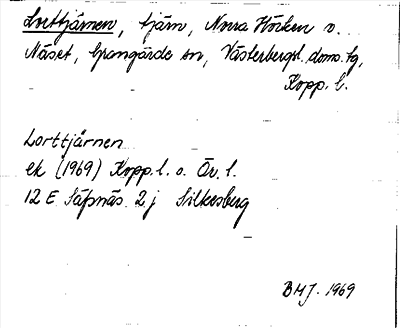 Lorttjärnen, tjärn, Norra Hörken o.
Näset, Grangärde sn, Västerbergsl. doms. tg,
Kopp. l.
Lorttjärnen
ek (1969) Kopp. l. o. Ör. l.
12 E Säfsnäs 2 j Silkesberg
BHJ. 1969